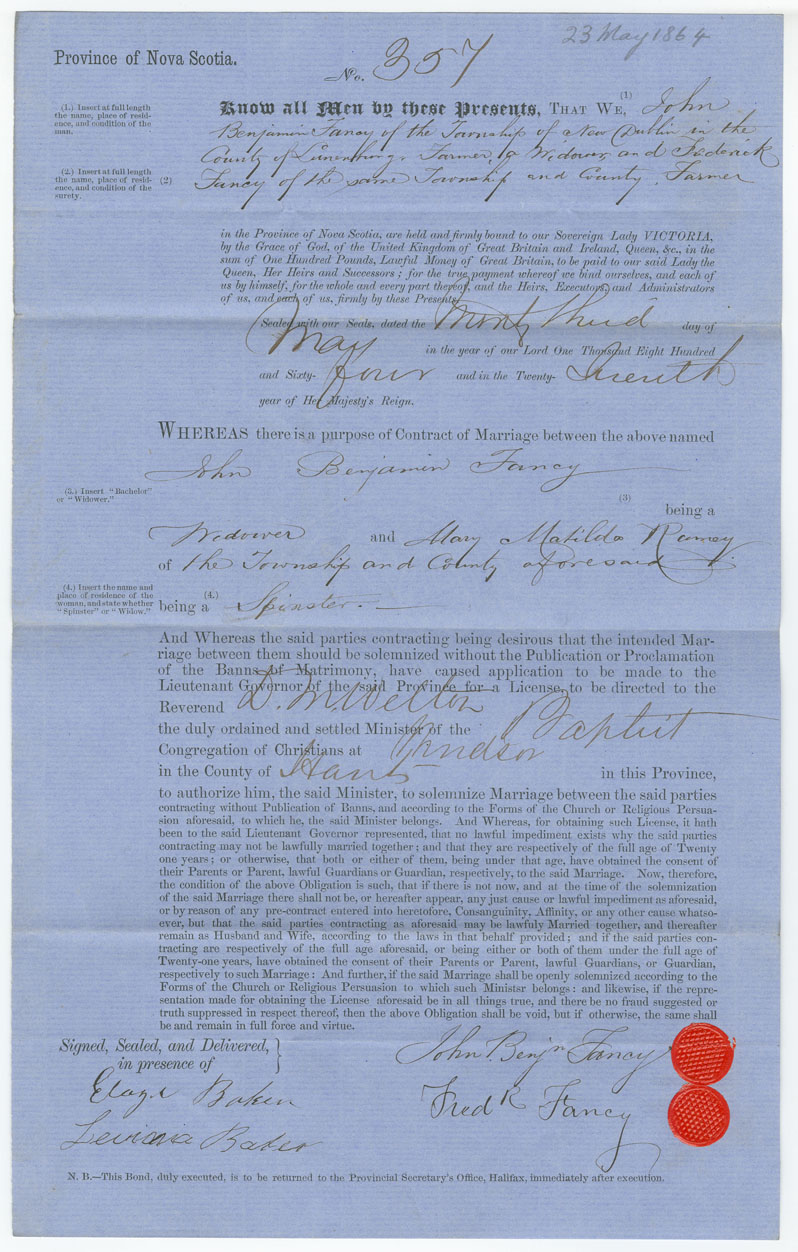 23 May 1864
Province of Nova Scotia.
No. 357
(1.) Insert at full length
the name, place of resid-
ence, and condition of the
man.
Know all Men by these Presents, THAT WE, (1) John
Benjamin Fancy of the Township of New Dublin in the
County of Lunenburg, Farmer, a Widower, and Frederick
(2.) Insert at full length
the name, place of resid-
ence, and condition of the
surety.
(2) Fancy of the same Township and County, Farmer
in the Province of Nova Scotia, are held and firmly bound to our Sovereign Lady VICTORIA,
by the Grace of God, of the United Kingdom of Great Britain and Ireland, Queen, &c., in the
sum of One Hundred Pounds, Lawful Money of Great Britain, to be paid to our said Lady the
Queen, Her Heirs and Successors; for the true payment whereof we bind ourselves, and each of
us by himself, for the whole and every part thereof, and the Heirs, Executors, and Administrators
of us, and each of us, firmly by these Presents.
Sealed with our Seals, dated the Twenty third day of
May in the year of our Lord One Thousand Eight Hundred
and Sixty- four and in the Twenty-
year of Her Majesty's Reign.
WHEREAS there is a purpose of Contract of Marriage between the above named
John Benjamin Fancy
(3.) Insert "Bachelor"
or "Widower."
(3)
being a
Widower and Mary Matilda Ramey
of the Township and County aforesaid
(4.) Insert the name and
place of residence of the
woman, and state whether
"Spinster" or "Widow."
(4.)
being a Spinster.
And Whereas the said parties contracting being desirous that the intended Mar-
riage between them should be solemnized without the Publication or Proclamation
of the Banns of Matrimony, have caused application to be made to the
Lieutenant Governor of the said Province for a License, to be directed to the
Reverend D. M. Welton
the duly ordained and settled Minister of the Baptist
Congregation of Christians at Windsor
in the County of Hants in this Province,
to authorize him, the said Minister, to solemnize Marriage between the said parties
contracting without Publication of Banns, and according to the Forms of the Church or Religious Persua-
sion aforesaid, to which he, the said Minister belongs. And Whereas, for obtaining such License, it hath
been to the said Lieutenant Governor represented, that no lawful impediment exists why the said parties
contracting may not be lawfully married together; and that they are respectively of the full age of Twenty
one years; or otherwise, that both or either of them, being under that age, have obtained the consent of
their Parents or Parent, lawful Guardians or Guardian, respectively, to the said Marriage. Now, therefore,
the condition of the above Obligation is such, that if there is not now, and at the time of the solemnization
of the said Marriage there shall not be, or hereafter appear, any just cause or lawful impediment as aforesaid,
or by reason of any pre-contract entered into heretofore, Consanguinity, Affinity, or any other cause whatso-
ever, but that the said parties contracting as aforesaid may be lawfuly Married together, and thereafter
remain as Husband and Wife, according to the laws in that behalf provided; and if the said parties con-
tracting are respectively of the full age aforesaid, or being either or both of them under the full age of
Twenty-one years, have obtained the consent of their Parents or Parent, lawful Guardians, or Guardian,
respectively to such Marriage: And further, if the said Marriage shall be openly solemnized according to the
Forms of the Church or Religious Persuasion to which such Ministsr belongs: and likewise, if the repre-
sentation made for obtaining the License aforesaid be in all things true, and there be no fraud suggested or
truth suppressed in respect thereof, then the above Obligation shall be void, but if otherwise, the same shall
be and remain in full force and virtue.
Signed, Sealed, and Delivered,
in presence of
John Benjn Fancy
Baken
Fredk Fancy
Baker
N. B.—This Bond, duly executed, is to be returned to the Provincial Secretary's Office, Halifax, immediately after execution.